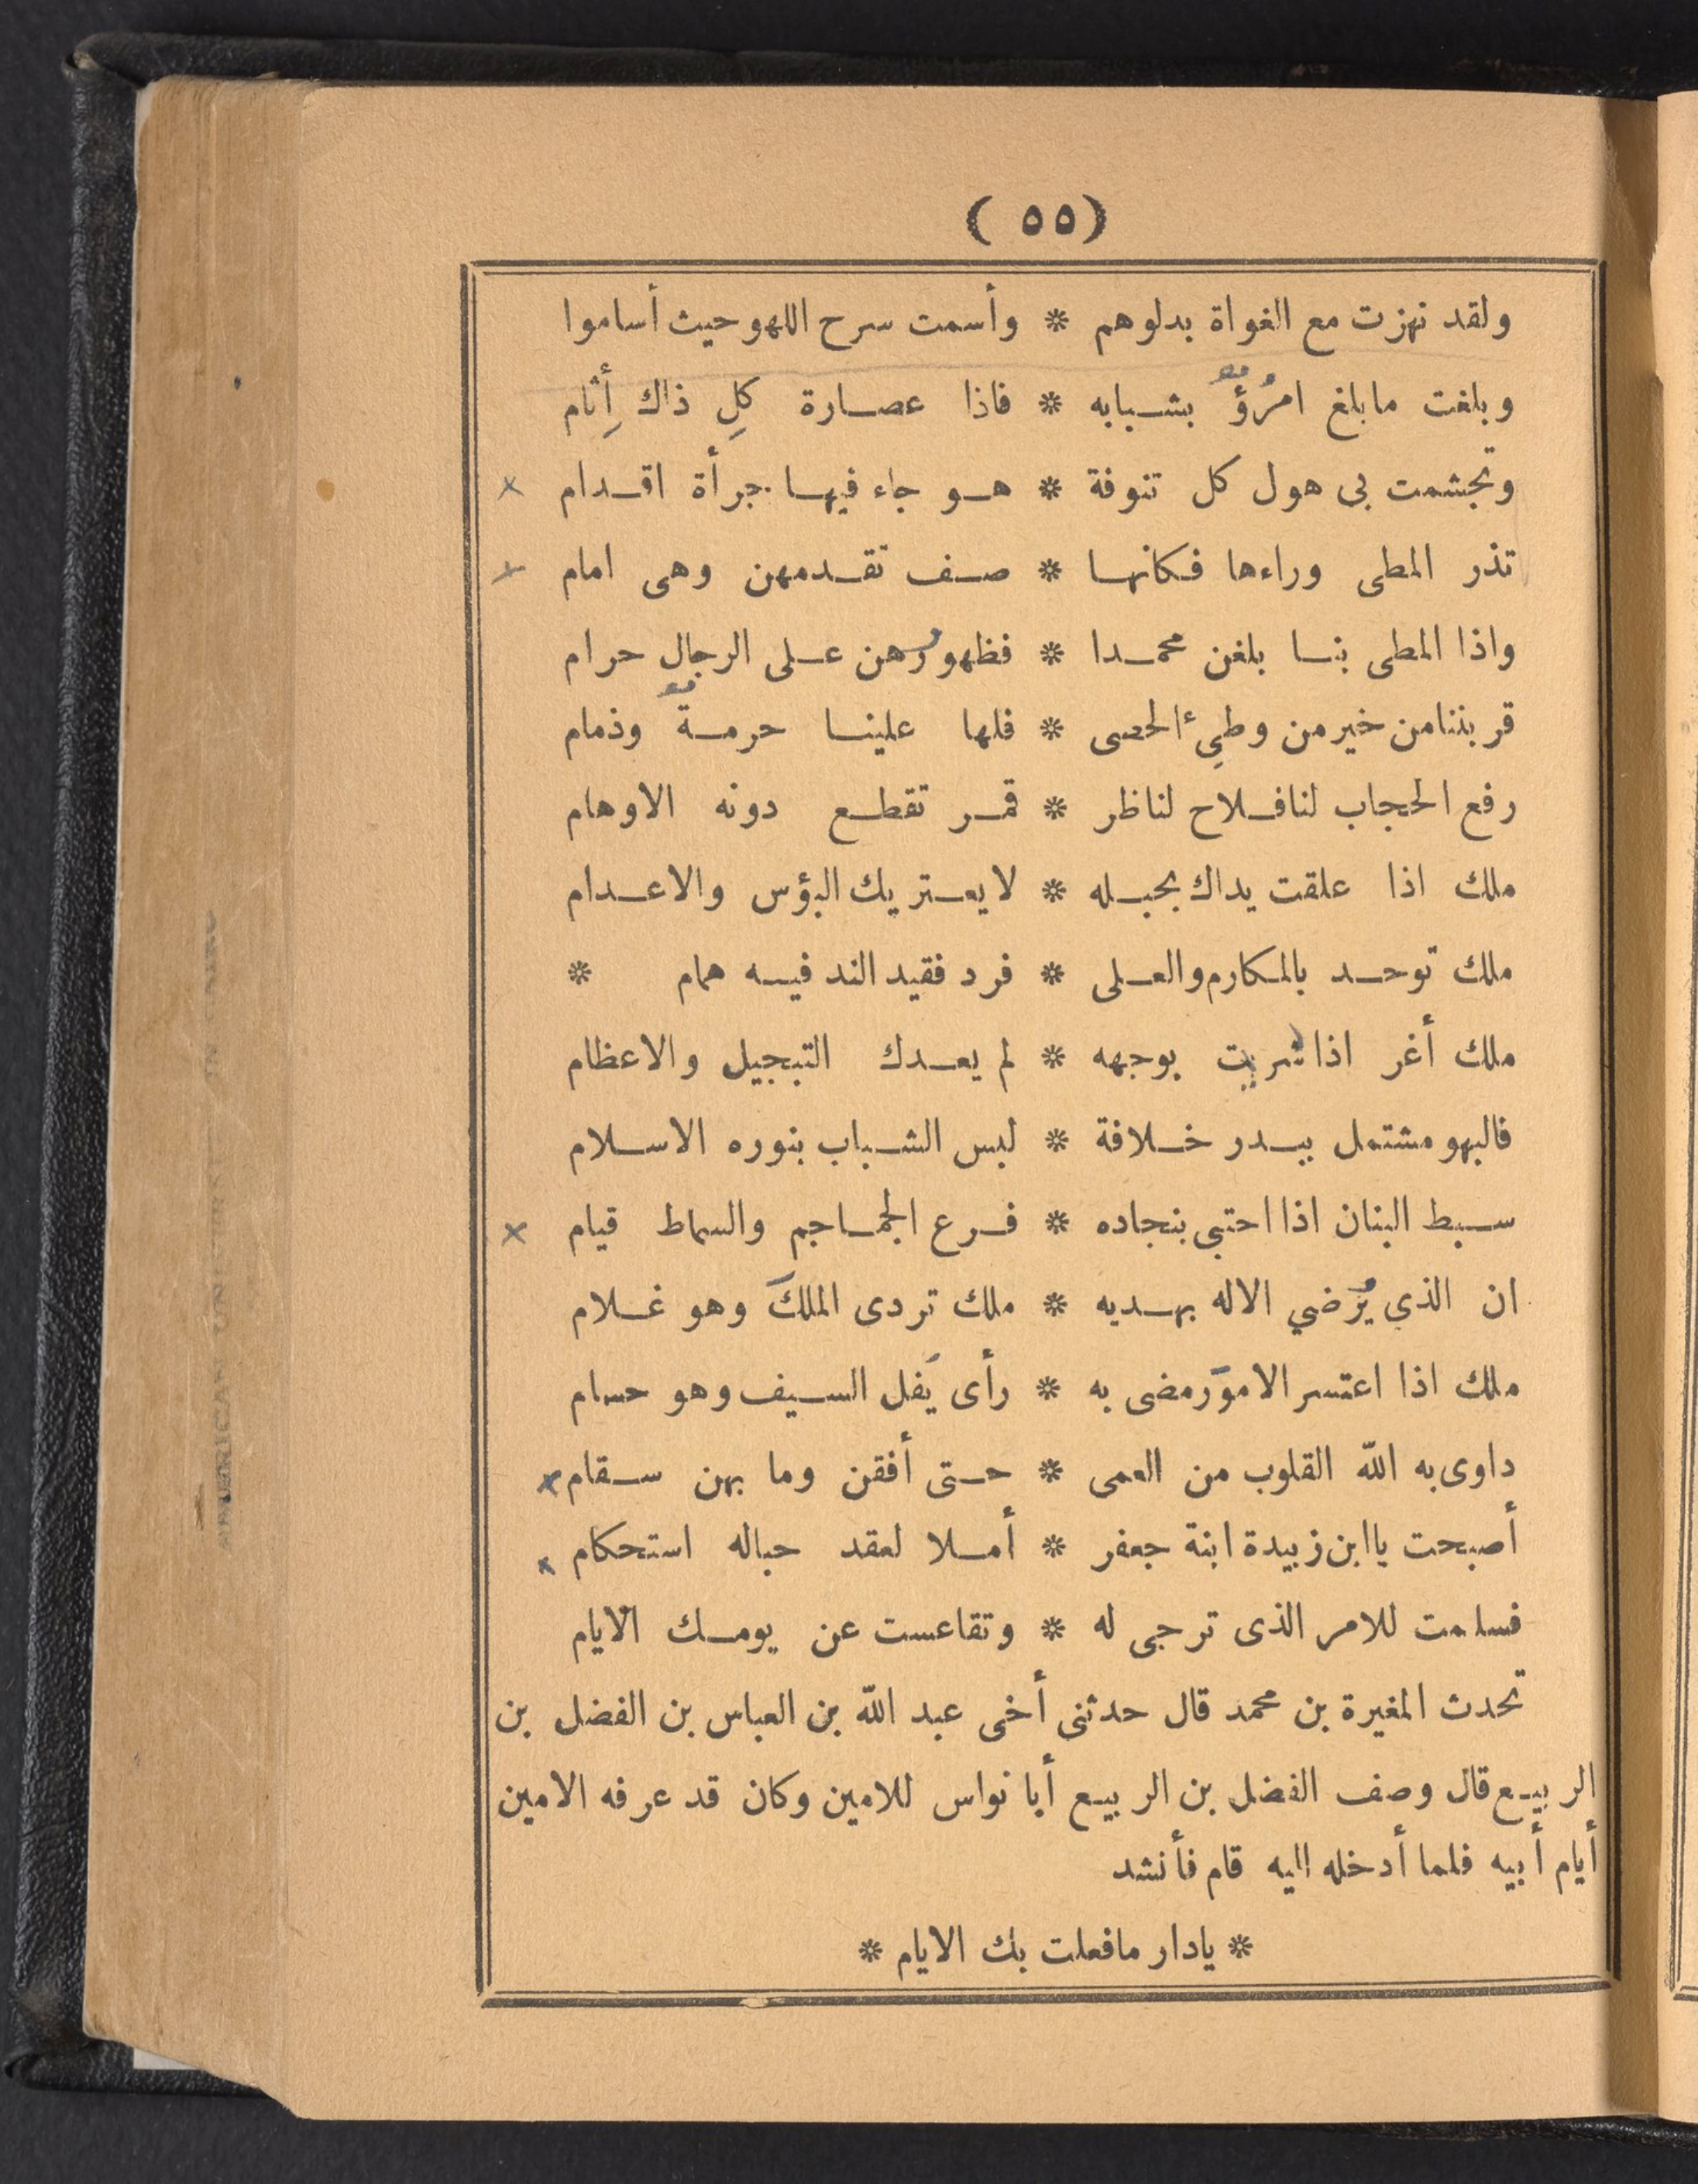 (٥٥)
ولقد نهزت مع الغواة بدلوهم * وأسمت سرح اللهو حيث أساموا
وبلغت مابلغ امرُؤٌ بشبابه * فاذا عصارة كلِ ذاك أِثام
وتجشمت بى هول كل تنوفة * هوجاء فيها جرأة اقدام
تذر المطى وراءها فكانها * صف تقدمهن وهى امام
واذا المطى بنا بلغن محمدا * فظهورُهن على الرجال حرام
قربننامن خير من وطىِء الحصى * فلها علينا حرمةٌ وذمام
رفع الحجاب لنافلاح لناظر * قمر تقطع دونه الاوهام
ملك اذا علقت يداك بحبله * لايعتريك البؤس والاعدام
ملك توحد بالمكارم والعلى * فرد فقيد الند فيه همام *
ملك أغر اذا شربت بوجهه * لم يعدك التبجيل والاعظام
فالبهو مشتمل ببدر خلافة * لبس الشباب بنوره الاسلام
سبط البنان اذا احتبى بنجاده * فرع الجماجم والسماط قيام
ان الذي يُرضي الاله بهديه * ملك تردى الملكَ وهو غلام
ملك اذا اعتسر الامورَ مضى به * رأى يَفل السيف وهو حسام
داوى به الله القلوب من العمى * حتى أفقن وما بهن سقام
أصبحت ياابن زبيدة ابنة جعفر * أملا لعقد حباله استحكام
فسلمت للامر الذى ترجى له * وتقاعست عن يومك الايام
تحدث المغيرة بن محمد قال حدثنى أخى عبد الله بن العباس بن الفضل بن
الربيع قال وصف الفضل بن الربيع أبا نواس للامين وكان قد عرفه الامين
أيام أبيه فلما أدخله اليه قام فأنشد
* يادار مافعلت بك الايام *